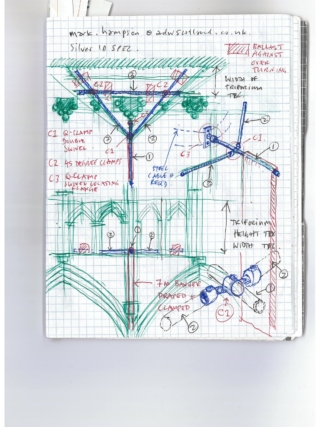 mark.hampson@adwscotland.co.uk
Silver 10 SPEZ
BALLAST
AGAINST
OVER
TURNING
WIDTH OF
TRIFORIUM
TBC
C2
C2
C1
C1 G-CLAMP
DOUBLE
SWIVEL
C2 45 DEGREE CLAMPS
C3 G-CLAMP
C1
C3
STEEL
CABLE IF
REQ'D
TRIFORIUM
HEIGHT TBC
WIDTH TBC
7M BANNER
DRAPED &
CLAMPED
C2